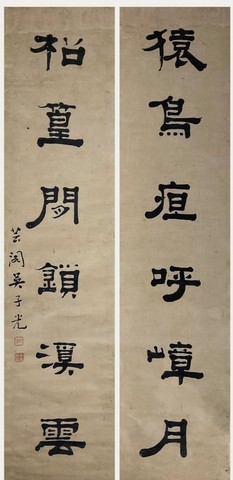 猿鳥呼嶂月
柗篁閒鎖溪雲
芸閣吳子光